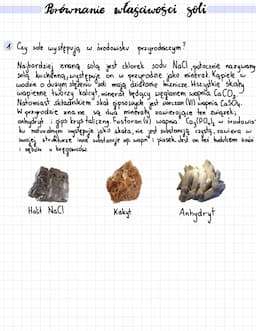 Porównanie właściwości soli
1 Czy sole występują w środowisku przyrodniczym?
Najbardziej znaną solą jest chlorek sodu NaCl, potocznie nazywany
solą kuchenną, występuje on w przyrodzie jako minerał. Kąpiele w
wodzie o dużym stężeniu soli mają działanie lecznicze. Wszystkie skały
wapienne tworzy kalcyt, minerał będący węglanem wapnia CaCO₂
Natomiast składnikiem skał gipsowych jest siarczan (VI) wapnia CaSO₄.
W przyrodzie znane są dwa minerały zawierające ten związek:
anhydryt i gips krystaliczny. Fosforan (V) wapnia Ca₃(PO₄)₂ w środowis-
ku naturalnym występuje jako skała, nie jest substancją czystą, zawiera w
swojej strukturze inne substancje np. wapń i piasek. Jest on też budulcem kości
i zębów u kręgowców.
Halit NaCl
Kalcyt
Anhydryt